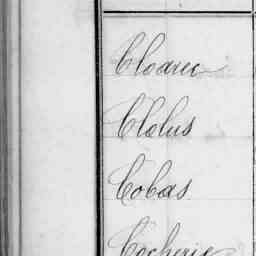 Cloarec
Clolus
Cobas
Cocherie